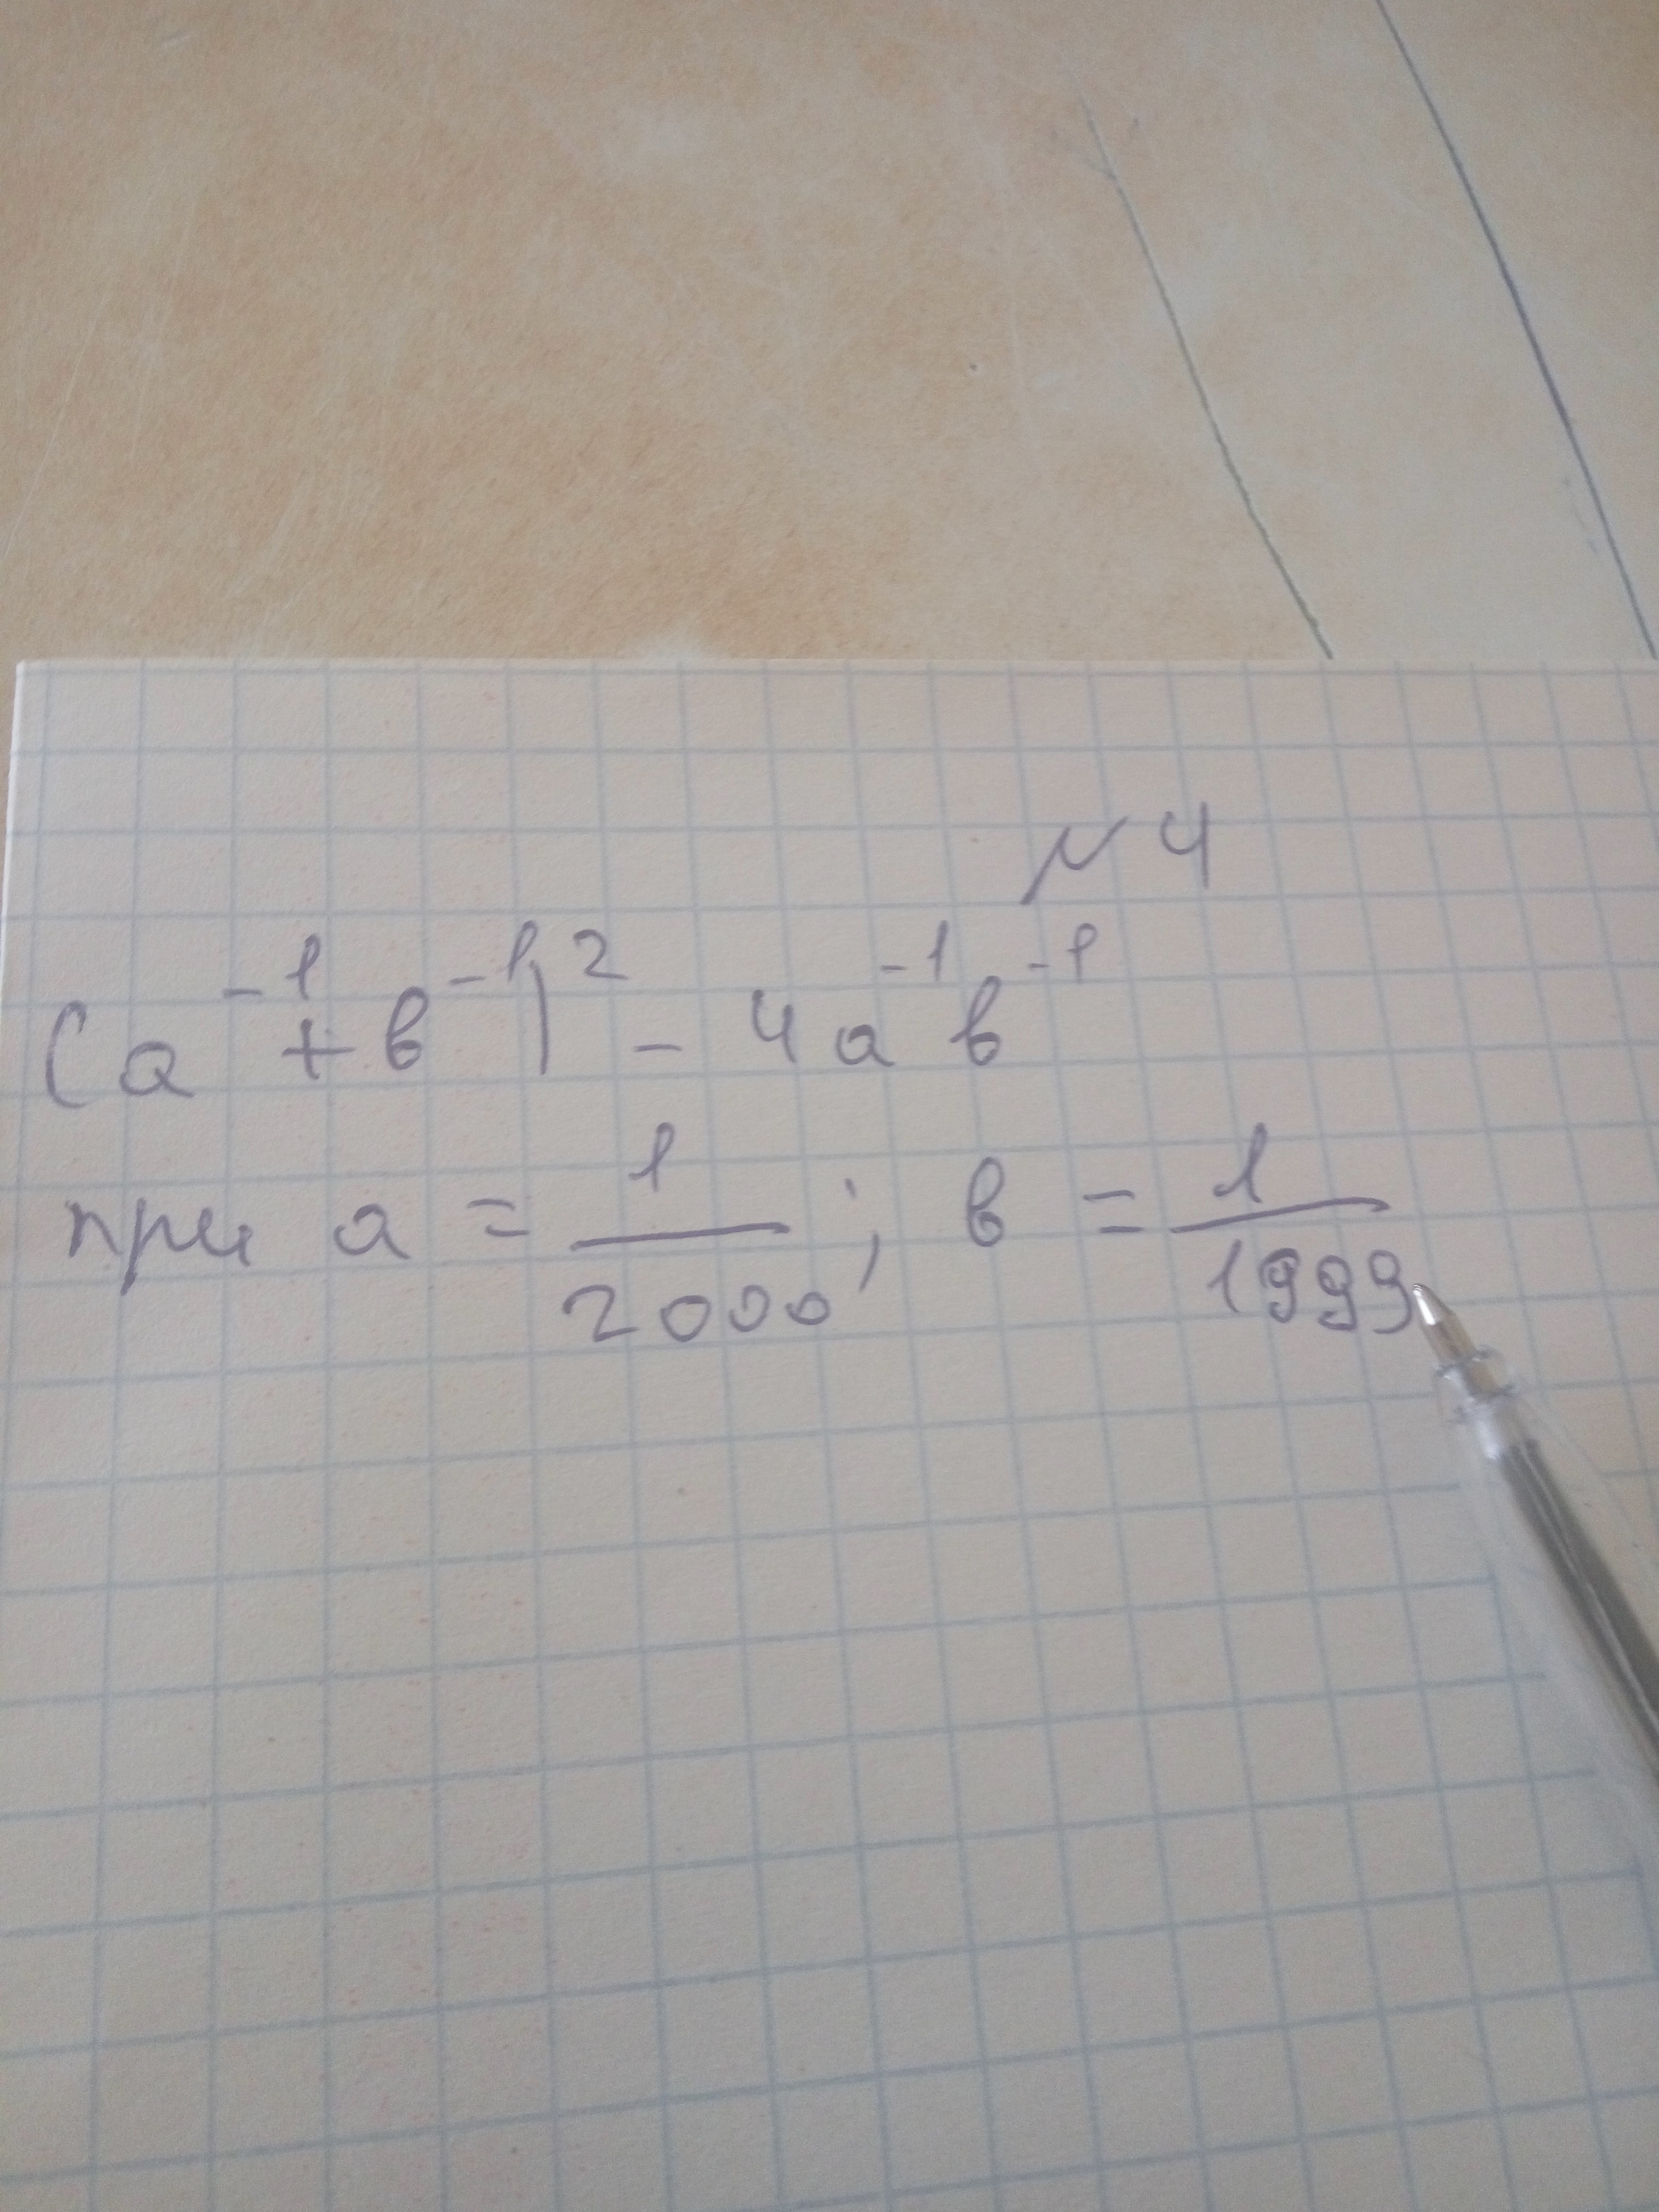 №4
(a⁻¹ + в⁻¹)² - 4a⁻¹в⁻¹
при a = 1/2000; в = 1/1999